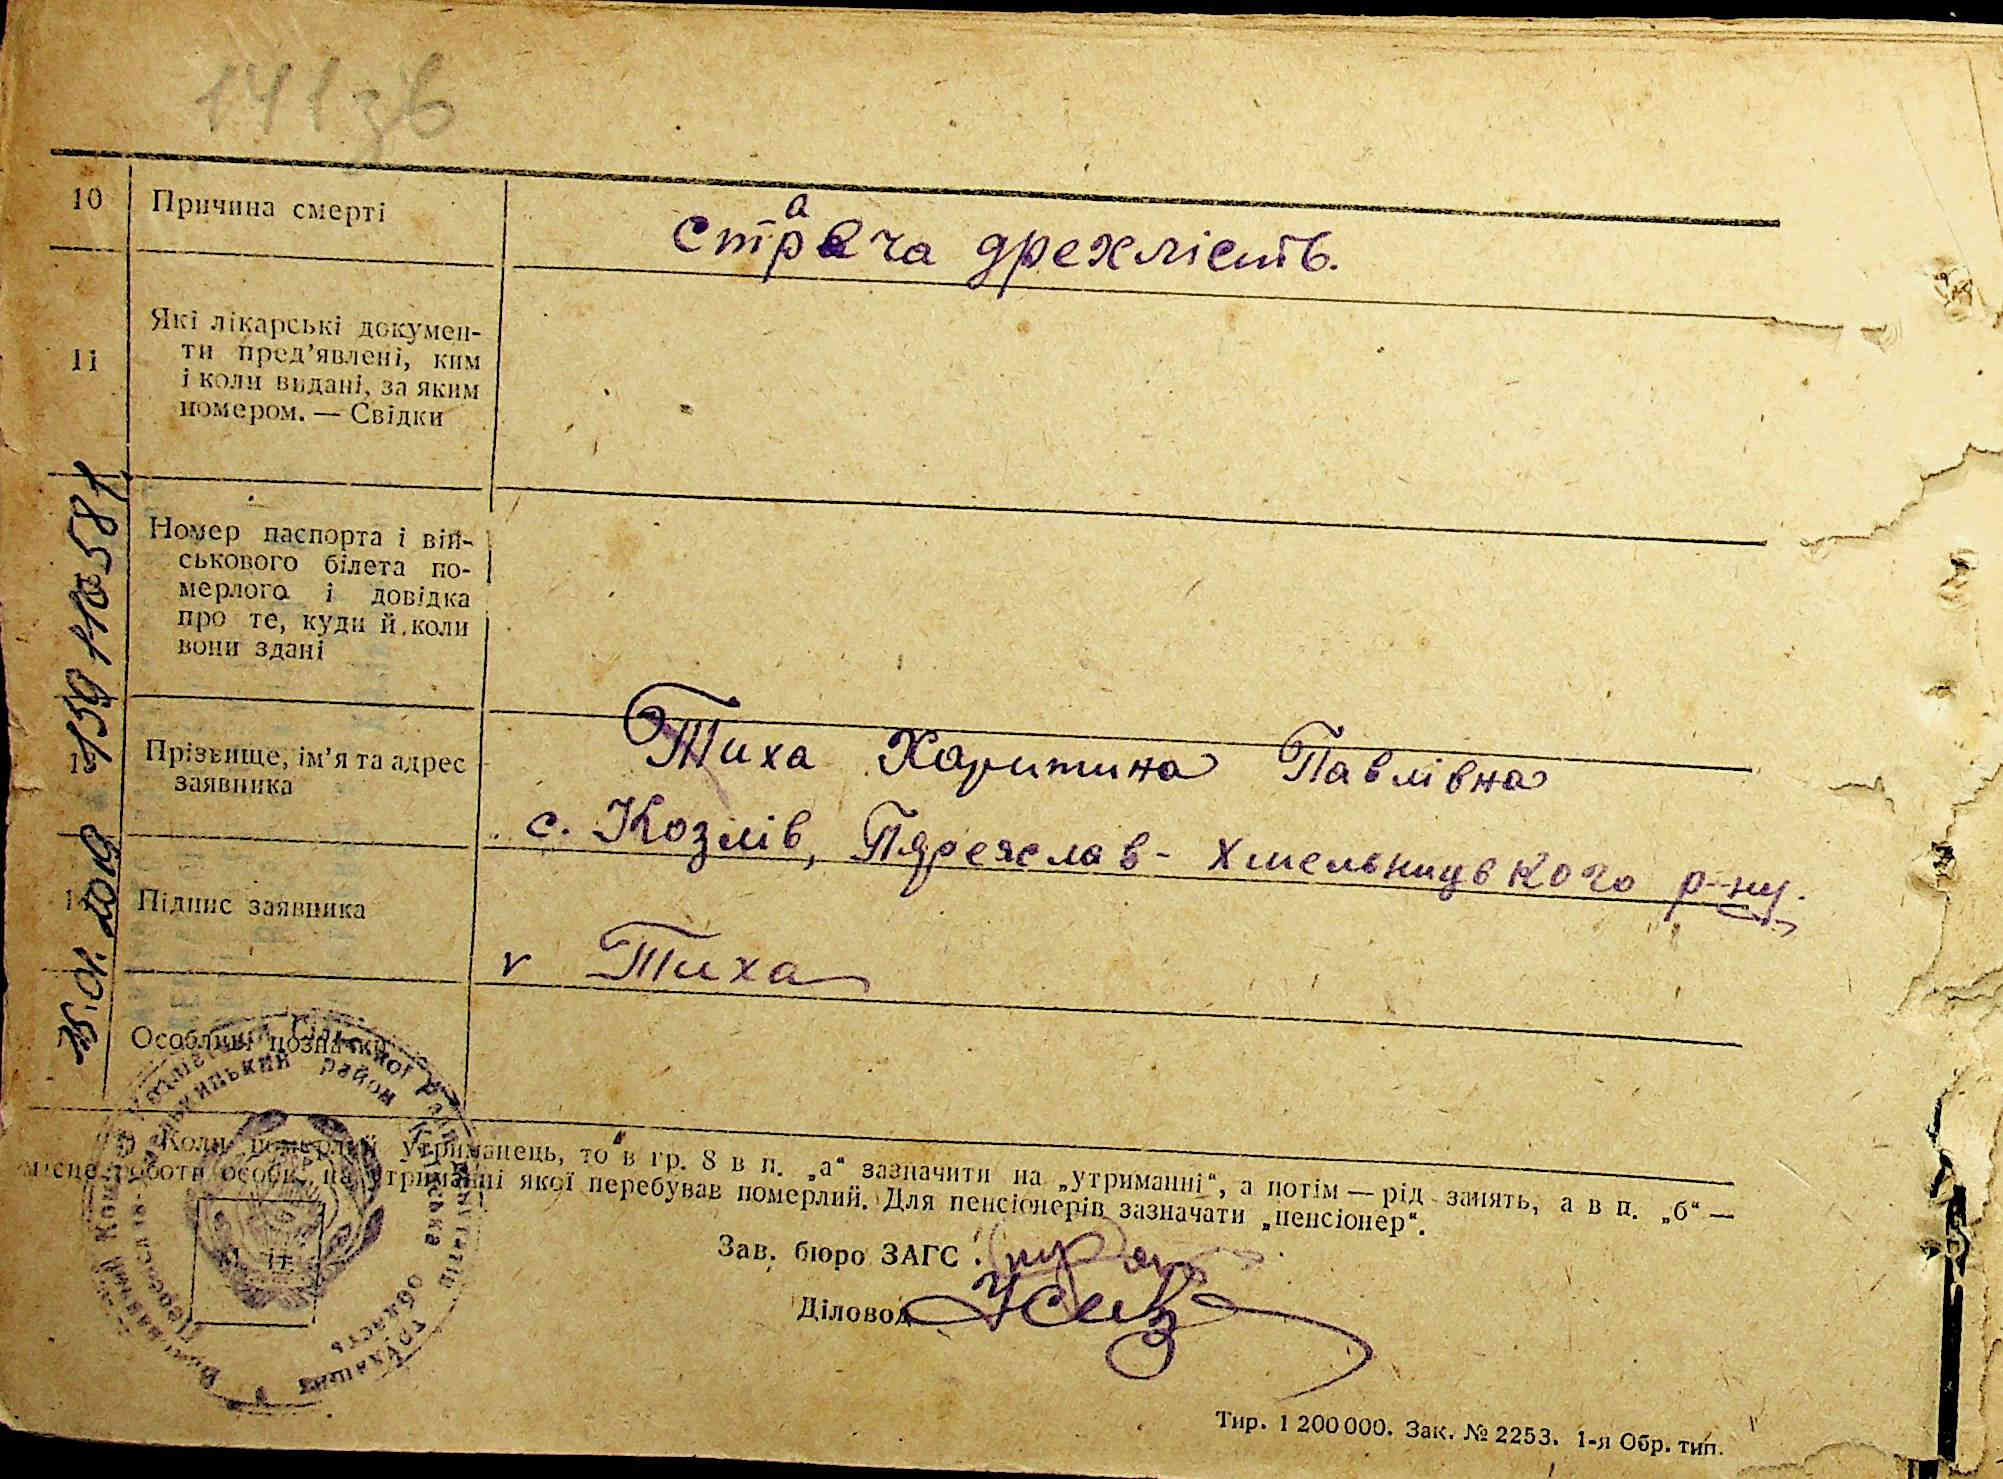 141зв
10 Причина смерті
страча дрехлість.
11 Які лікарські докумен-
ти пред’явлені, ким
і коли видані, за яким
номером. — Свідки
Номер паспорта і вій-
ськового білета по-
мерлого і довідка
про те, куди й коли
вони здані
Прізвище, ім’я та адрес
заявника
Тиха Харитина Павлівна
с. Козлів, Переяслав-Хмельницького р-ну.
Підпис заявника
v Тиха
Особливі позначки
Коли померлий утриманець, то в гр. 8 в п. „а“ зазначити на „утриманні“, а потім — рід занять, а в п. „б“ —
місце роботи особи, на утриманні якої перебував померлий. Для пенсіонерів зазначати „пенсіонер“.
Зав. бюро ЗАГС
Діловод
Тир. 1 200 000. Зак. № 2253. 1-я Обр. тип.